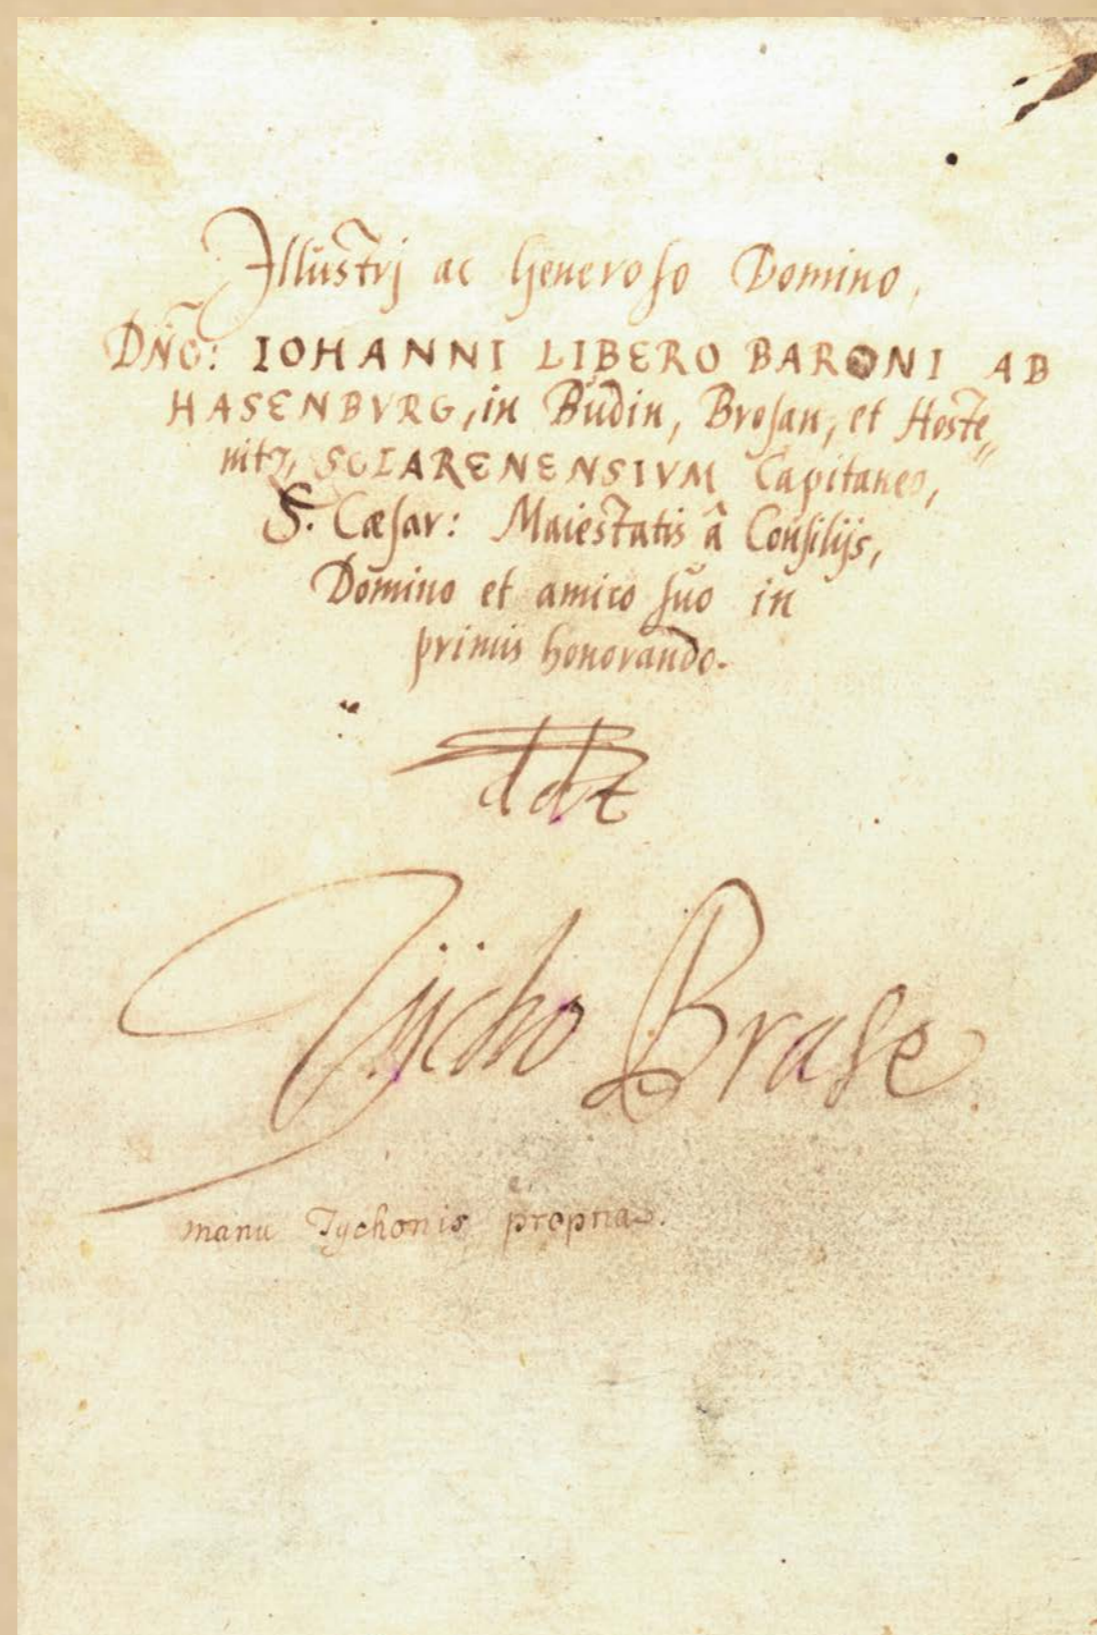 Illustrj ac Generoso Domino,
Dño: IOHANNI LIBERO BARONI AB
HASENBVRG, in Budin, Brosan, et Hoste„
nitz, SCLARENENSIVM Capitaneo,
S. Cæsar: Maiestatis â Consilijs,
Domino et amico suo in
primis honorando.
ddt
Tÿcho Brahe
manu Tychonis propria.